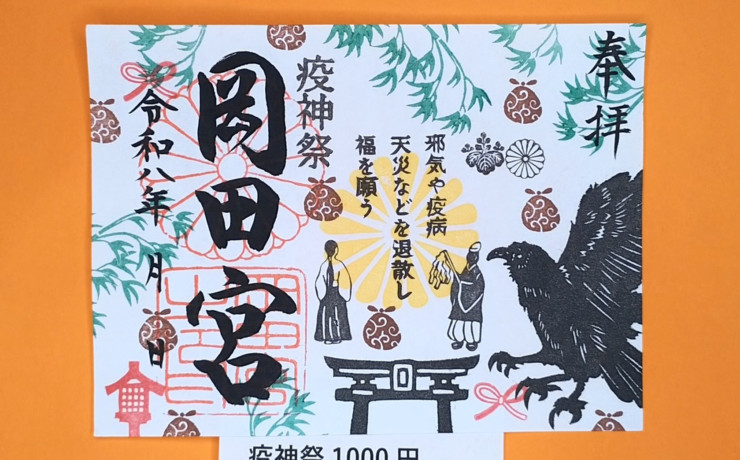 奉拝
邪気や疫病
天災などを退散し
福を願う
疫神祭
岡田宮
令和八年 月 日
疫神祭 1000 円